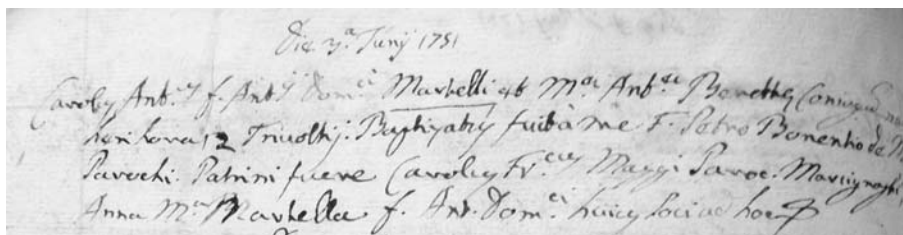 Die 3.a Junij 1751
Carolus Ant.us f. Ant.ij Dom.ci Martelli et M.ae Ant.ae Conjugum
heri hora 12 Baptizatus fuit à me F. Petro Bonentio de
Parochi. Patrini fuere Carolus Fr.cus Maggi Paroc.
Anna M.a Martella f. Ant. Dom.ci huius loci ad hoc